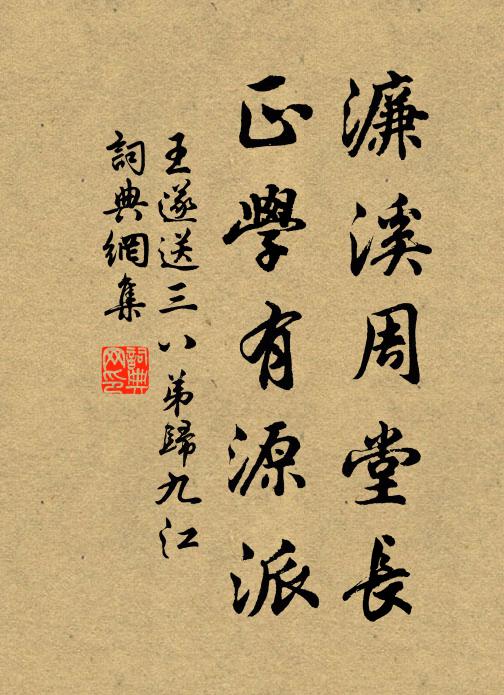 濂溪周堂長
正學有源派
王遂送三八弟歸九江
詞典網集
詞典
网印